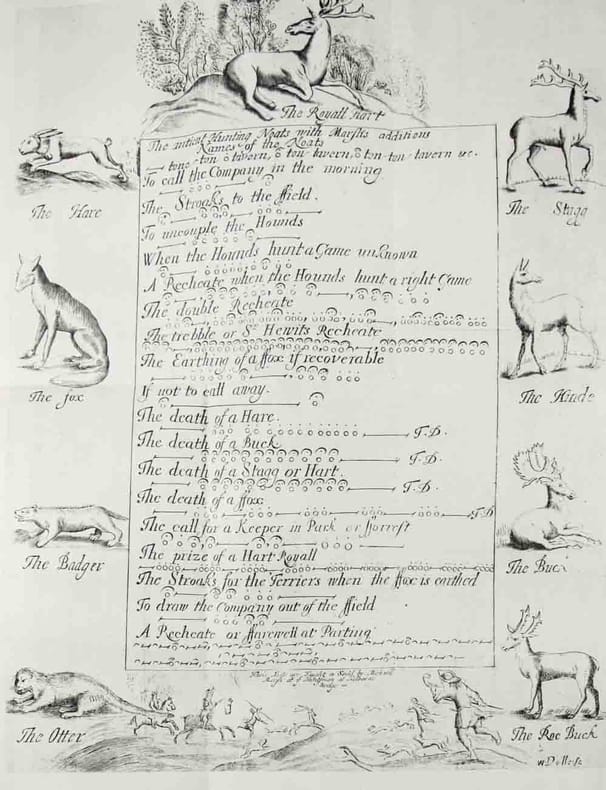 The Royall Hart
The antient Hunting Noats with Marshs additions
Names of the Noats
tone ton ō tavern, ō ton-tavern, ō ton-ton-tavern &c.
To call the Company in the morning
The Stroaks to the ffield.
To uncouple the Hounds
When the Hounds hunt a Game unknown
A Recheate when the Hounds hunt a right Game
The double Recheate
The trebble or Sr Hewits Recheate
The Earthing of a ffox if recoverable
If not to call away.
The death of a Hare.
T.D.
The death of a Buck
T.D.
The death of a Stagg or Hart.
T.D.
The death of a ffox
T.D
The call for a Keeper in Park or fforrest
The prize of a Hart Royall
The Stroaks for the Terriers when the ffox is earthed
To draw the Company out of the ffield
A Recheate or ffarewell at Parting
The Hare
The fox
The Badger
The Otter
The Stagg
The Hinde
The Buck
The Roe Buck